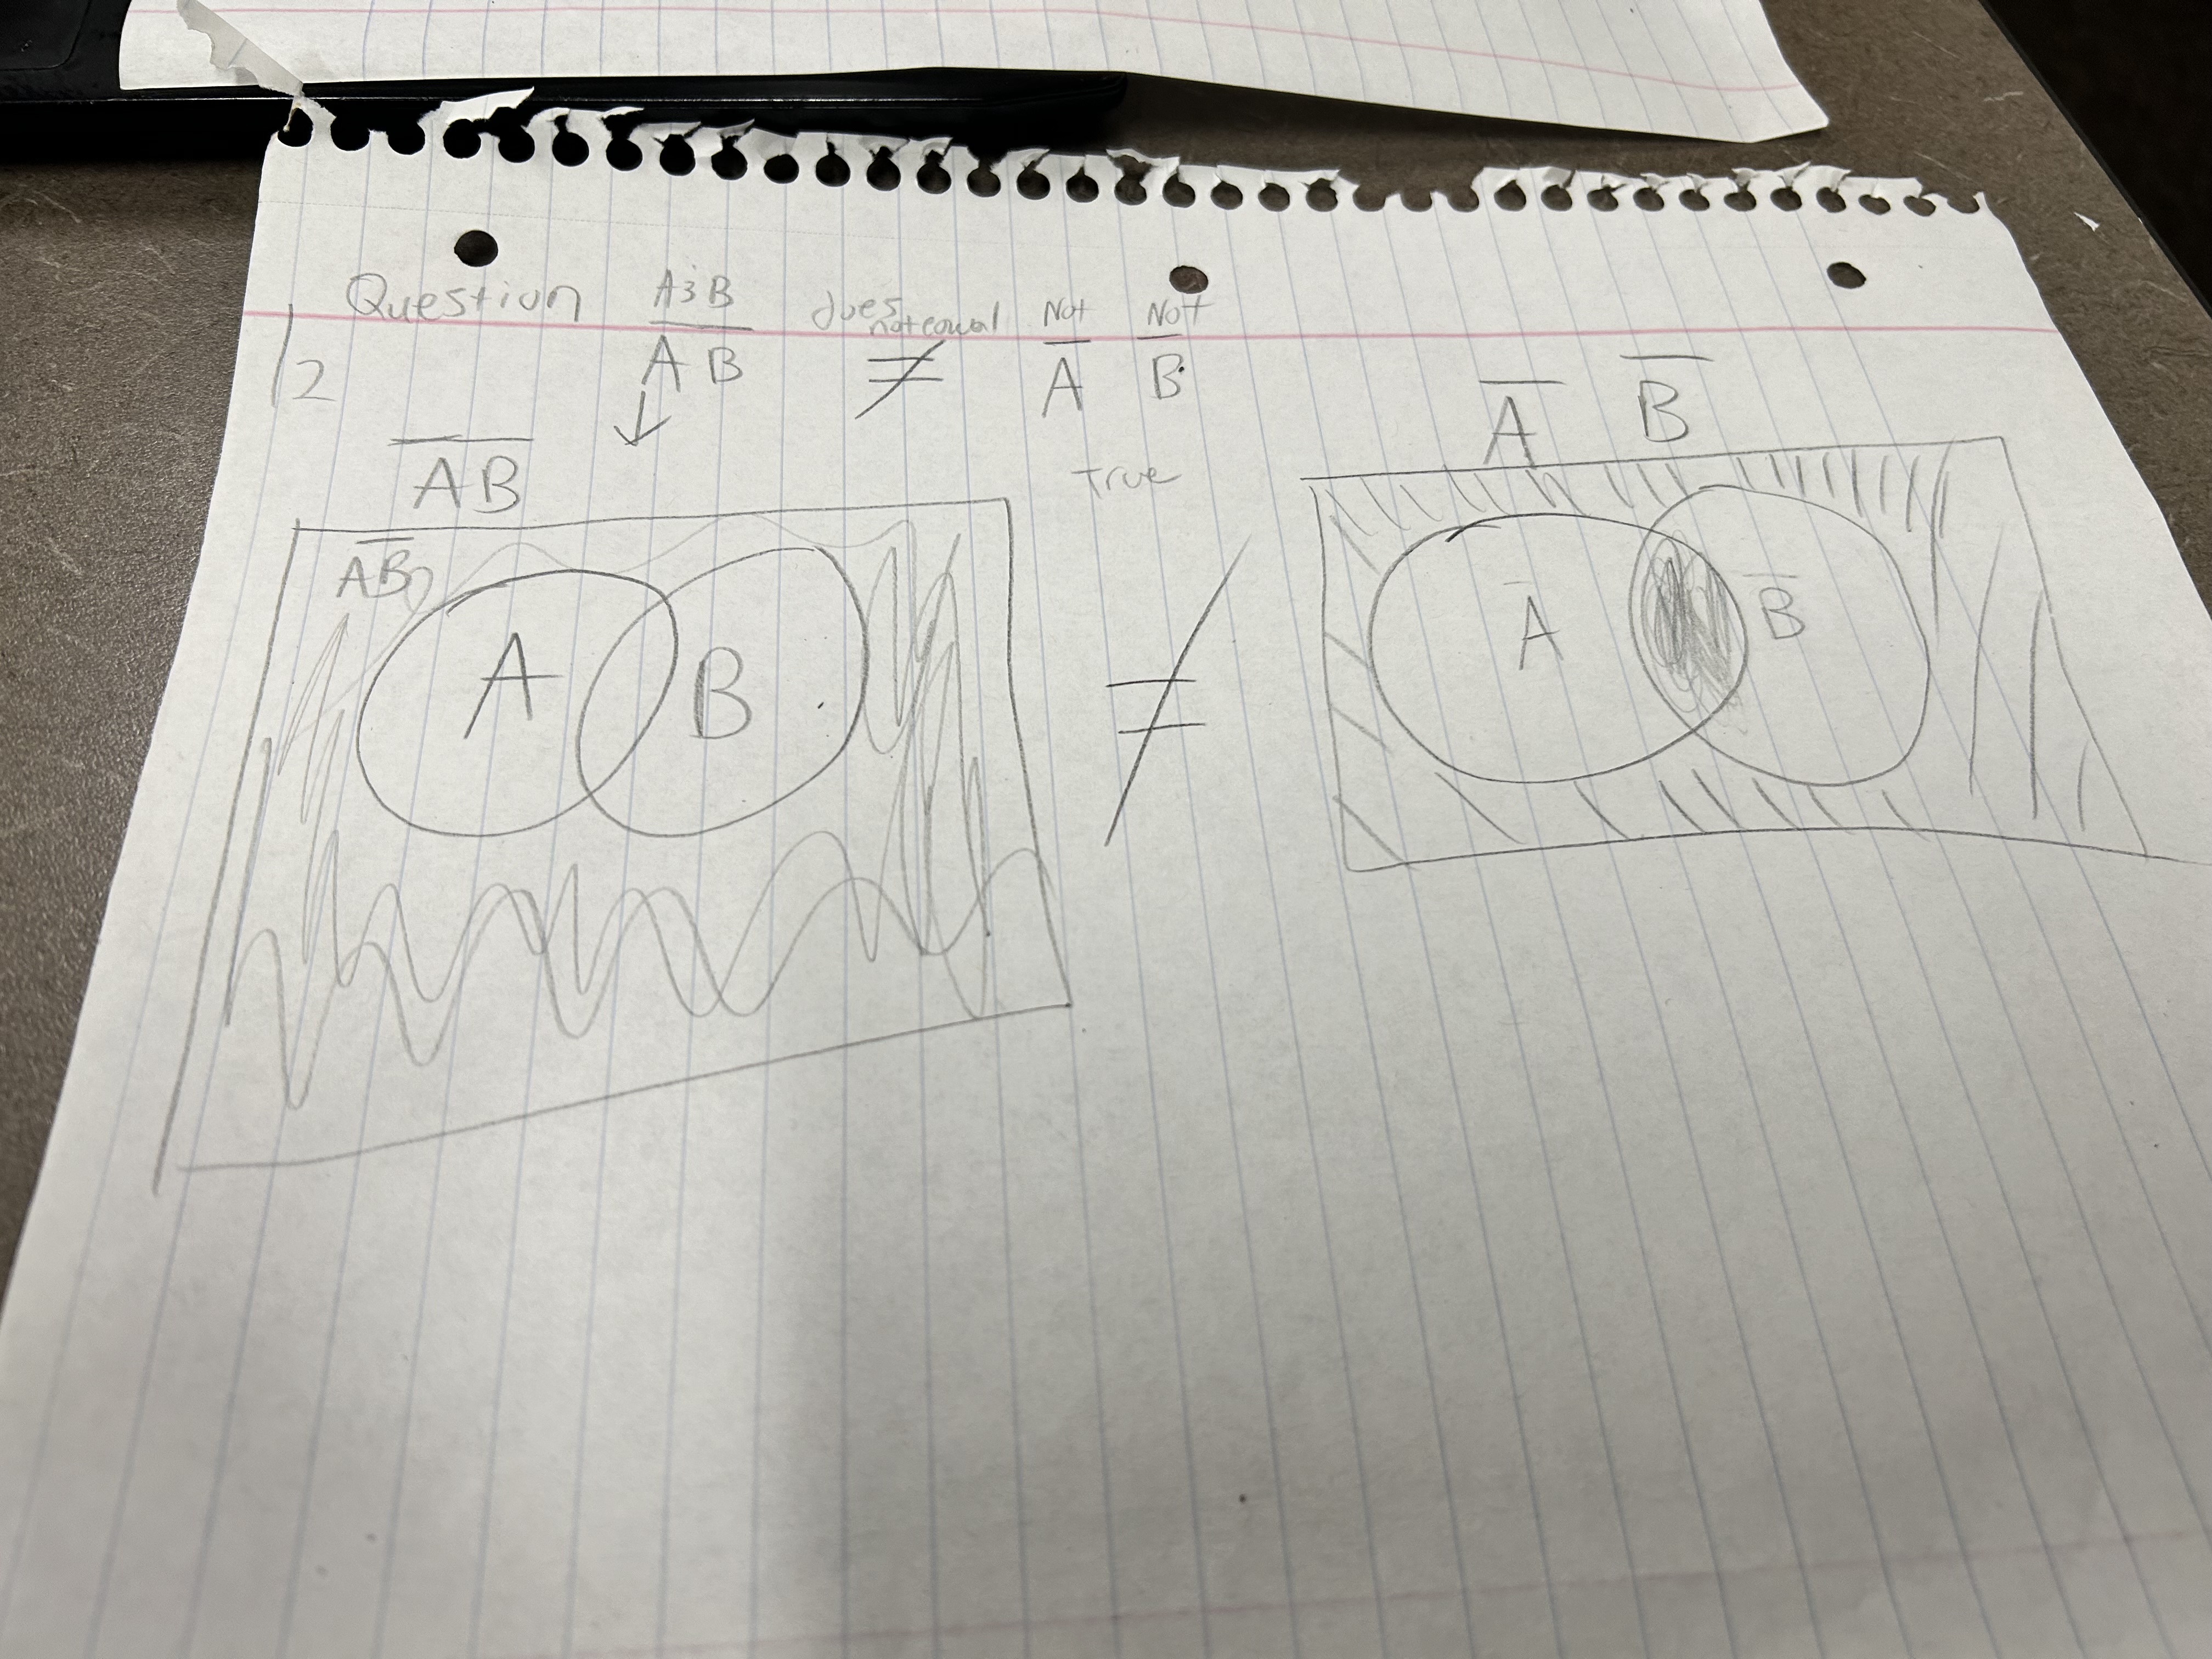 Question A & B does not equal Not Not
12 A̅B̅ ≠ A̅ B̅
↓
A̅B̅ True A̅ B̅
A̅B̅
A B ≠ A̅ B̅